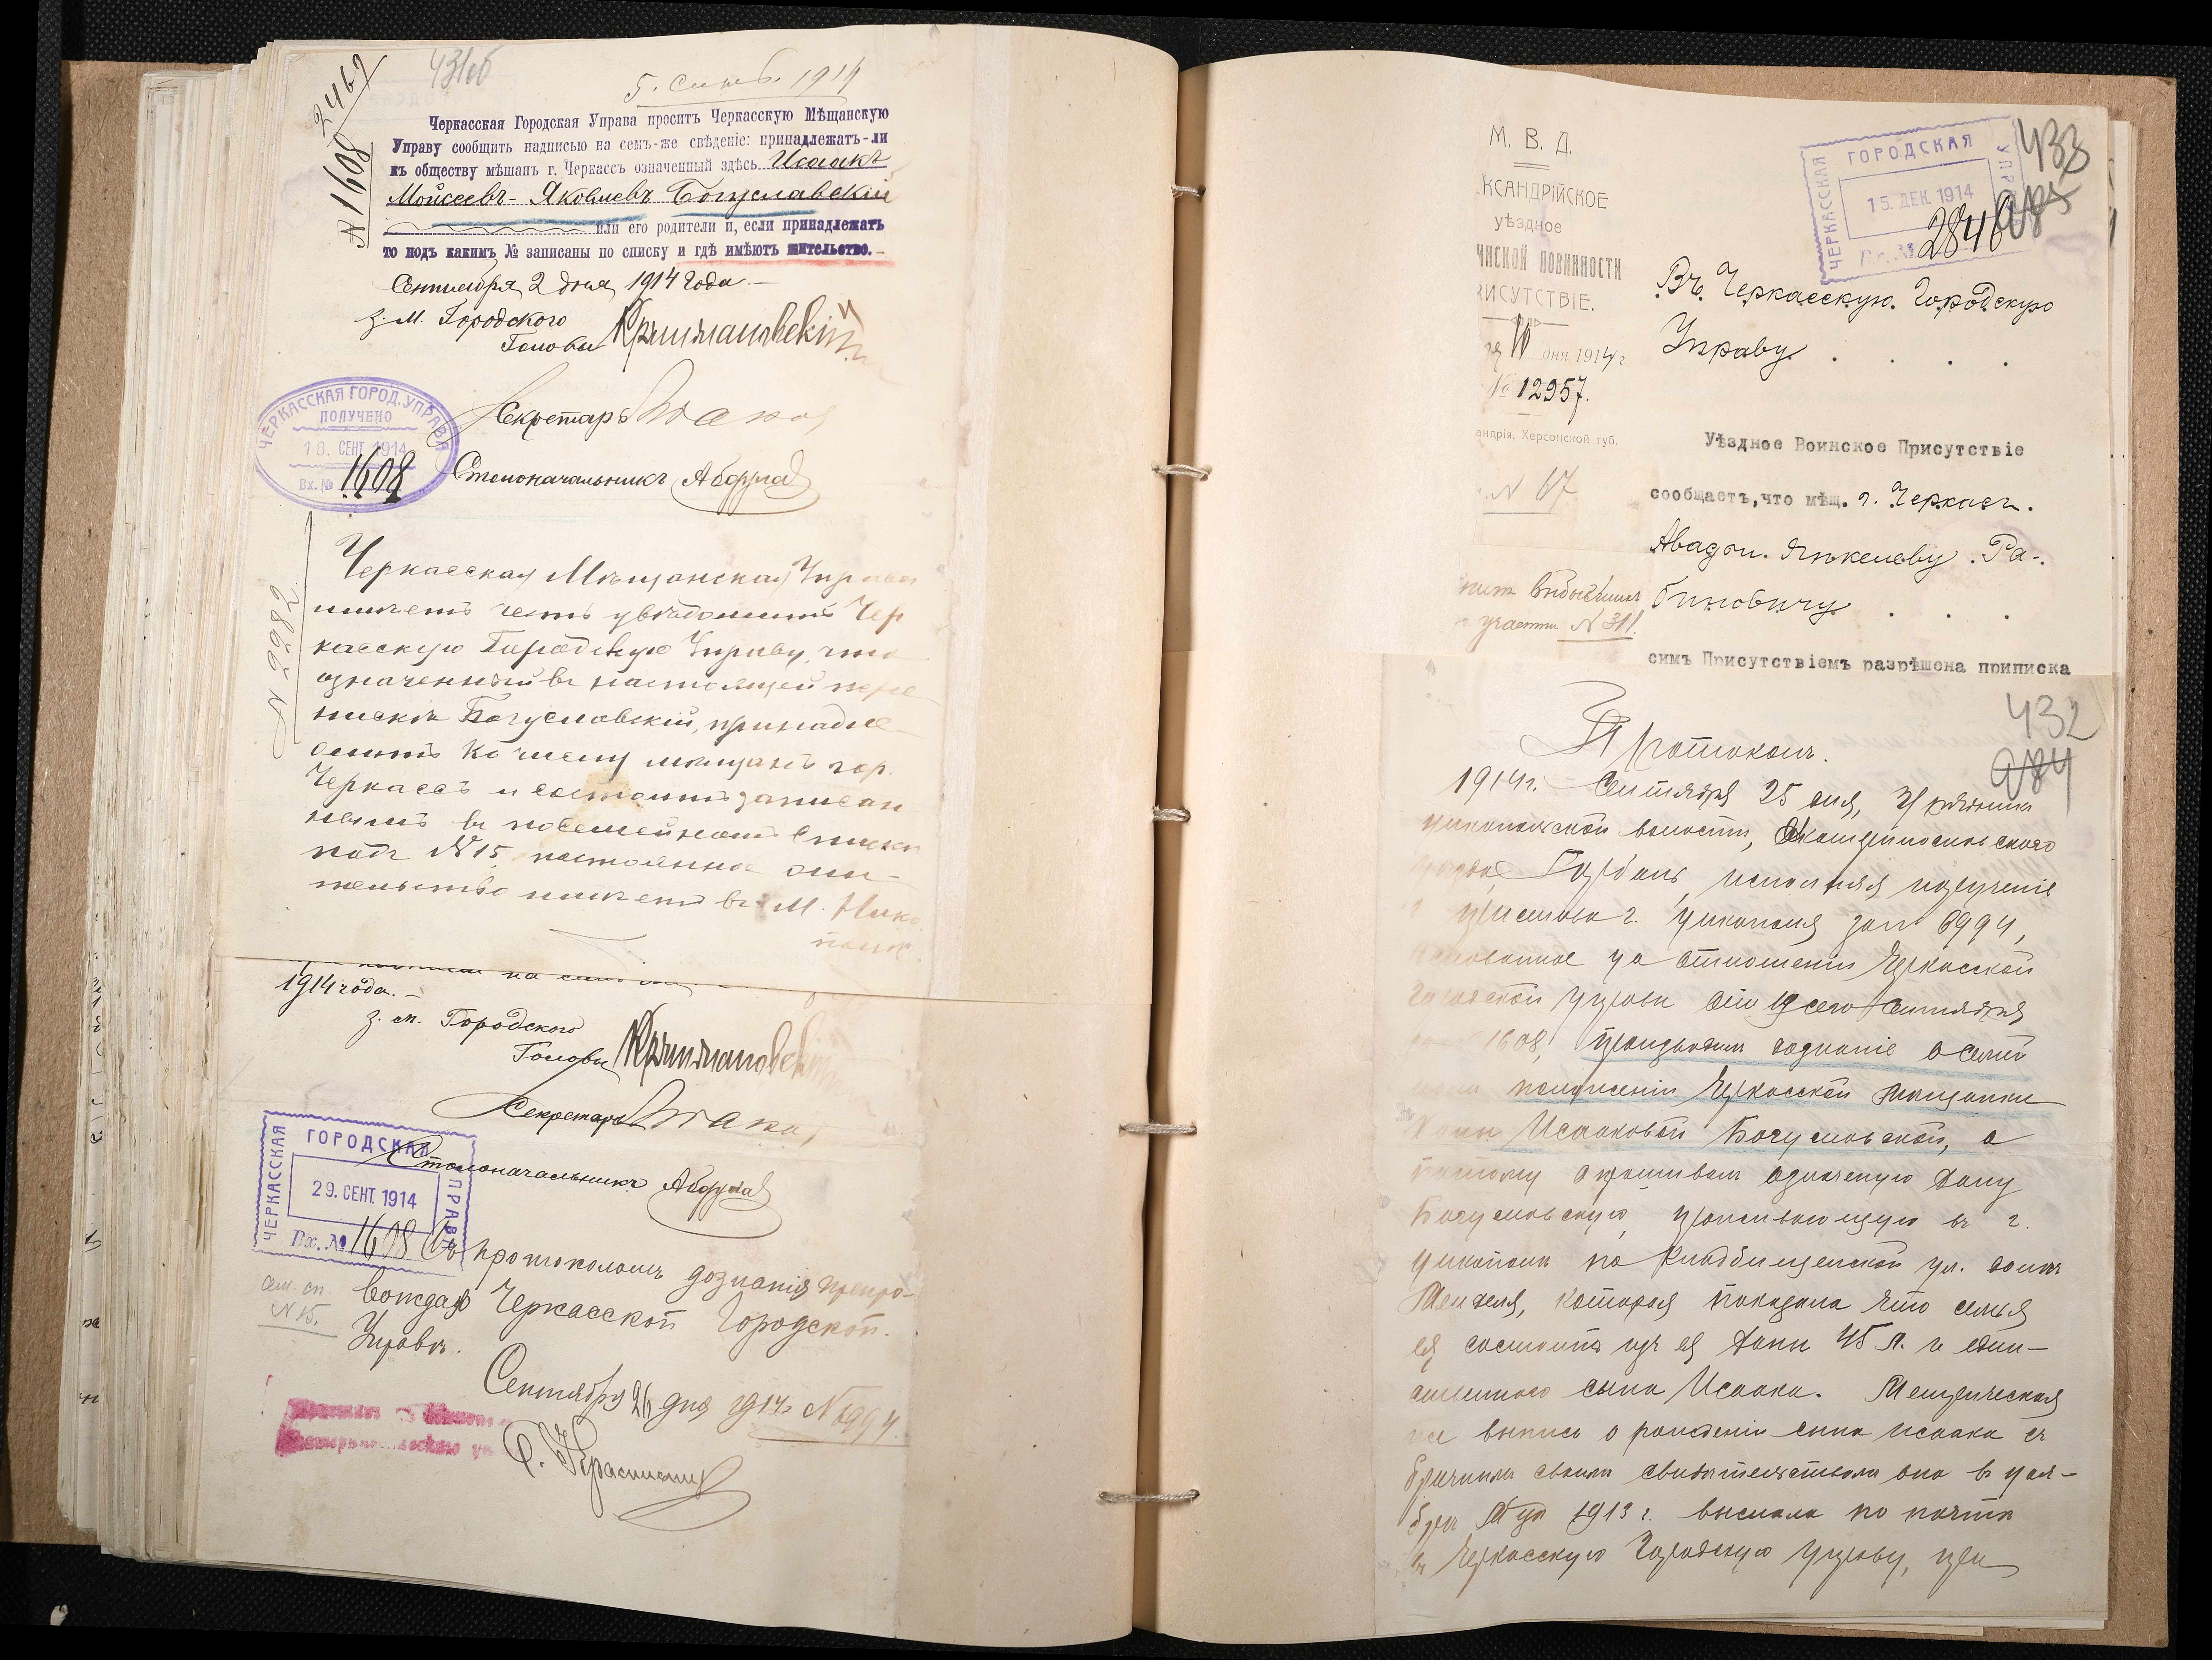 431об
5. Сент. 1914
2469
№ 1608
Черкасская Городская Управа проситъ Черкасскую Мѣщанскую
Управу сообщить надписью на семъ-же свѣдѣніе: принадлежатъ-ли
къ обществу мѣщанъ г. Черкассъ означенный здѣсь Исаакъ
Мойсеевъ-Яковлевъ Богуславскій
или его родители и, если принадлежатъ
то подъ какимъ № записаны по списку и гдѣ имѣютъ жительство.
Сентября 2 дня 1914 года
З. м. Городского
Головы
Секретарь
ЧЕРКАССКАЯ ГОРОД. УПРАВА
ПОЛУЧЕНО
18. СЕНТ. 1914
Вх. № 1608
Столоначальникъ
№ 2282
Черкасская Мѣщанская Управа
имѣетъ честь увѣдомить Чер
касскую Городскую Управу, что
означенный въ настоящей пере
пискѣ Богуславскій, принадле
житъ къ числу мѣщанъ гор.
Черкассъ и состоитъ записан
нымъ въ посемейномъ списке
подъ №15, постоянное жи-
тельство имѣетъ въ м. Нико
поле.
1914 года.
з. м. Городского
Головы
Секретарь
Столоначальникъ
ЧЕРКАССКАЯ ГОРОДСКАЯ УПРАВА
29. СЕНТ. 1914
Вх. № 1608
Съ протоколомъ дознанія препро-
вождаю Черкасской Городской
Управѣ.
сем. сп.
№ 15.
Сентября 26 дня 1914 г. №6994
М. В. Д.
КСАНДРІЙСКОЕ
уѣздное
ИНСКОЙ ПОВИННОСТИ
РИСУТСТВІЕ.
10 дня 1914 г.
№ 12957.
андрія, Херсонской губ.
№ 67
участка № 311
ЧЕРКАССКАЯ ГОРОДСКАЯ УПР
15. ДЕК. 1914
Вх. № 2846
433
985
Въ Черкасскую Городскую
Управу.
Уѣздное Воинское Присутствіе
сообщаетъ, что мѣщ. г. Черкасъ.
Авадон. Янкелеву Ра-
биновичу
симъ Присутствіемъ разрѣшена приписка
432
984
Протоколъ.
1914 г. Сентября 25 дня, Урядникъ
Никопольской волости, Екатеринославскаго
уѣзда, исполняя порученіе
Пристава г. Никополя за № 6994,
основанное на отношеніи Черкасской
Городской Управы отъ 19 сего Сентября
1608, производилъ дознаніе о семей
номъ положеніи Черкасской мѣщанки
Ханы Исааковой Богуславской, а
потому спрашивалъ означеную Хану
Богуславскую, проживающую въ г.
Никополѣ по Кладбищенской ул. домъ
Менделя, которая показала что семья
ея состоитъ изъ ея Ханы 45 л. и един-
ственного сына Исаака. Метрическая
же выпись о рожденіи сына Исаака съ
брачнымъ своимъ свидѣтельствомъ она въ ноя-
брѣ м-цѣ 1913 г. выслала по почтѣ
въ Черкасскую Городскую Управу, при